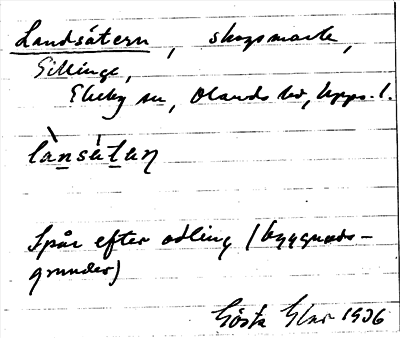 Landsätern, skogsmark,
Gillinge,
Ekeby sn, Olands hd, Upps. l.
lànsáta̱n
Spår efter odling (byggnads-
grunder)
Gösta 1936